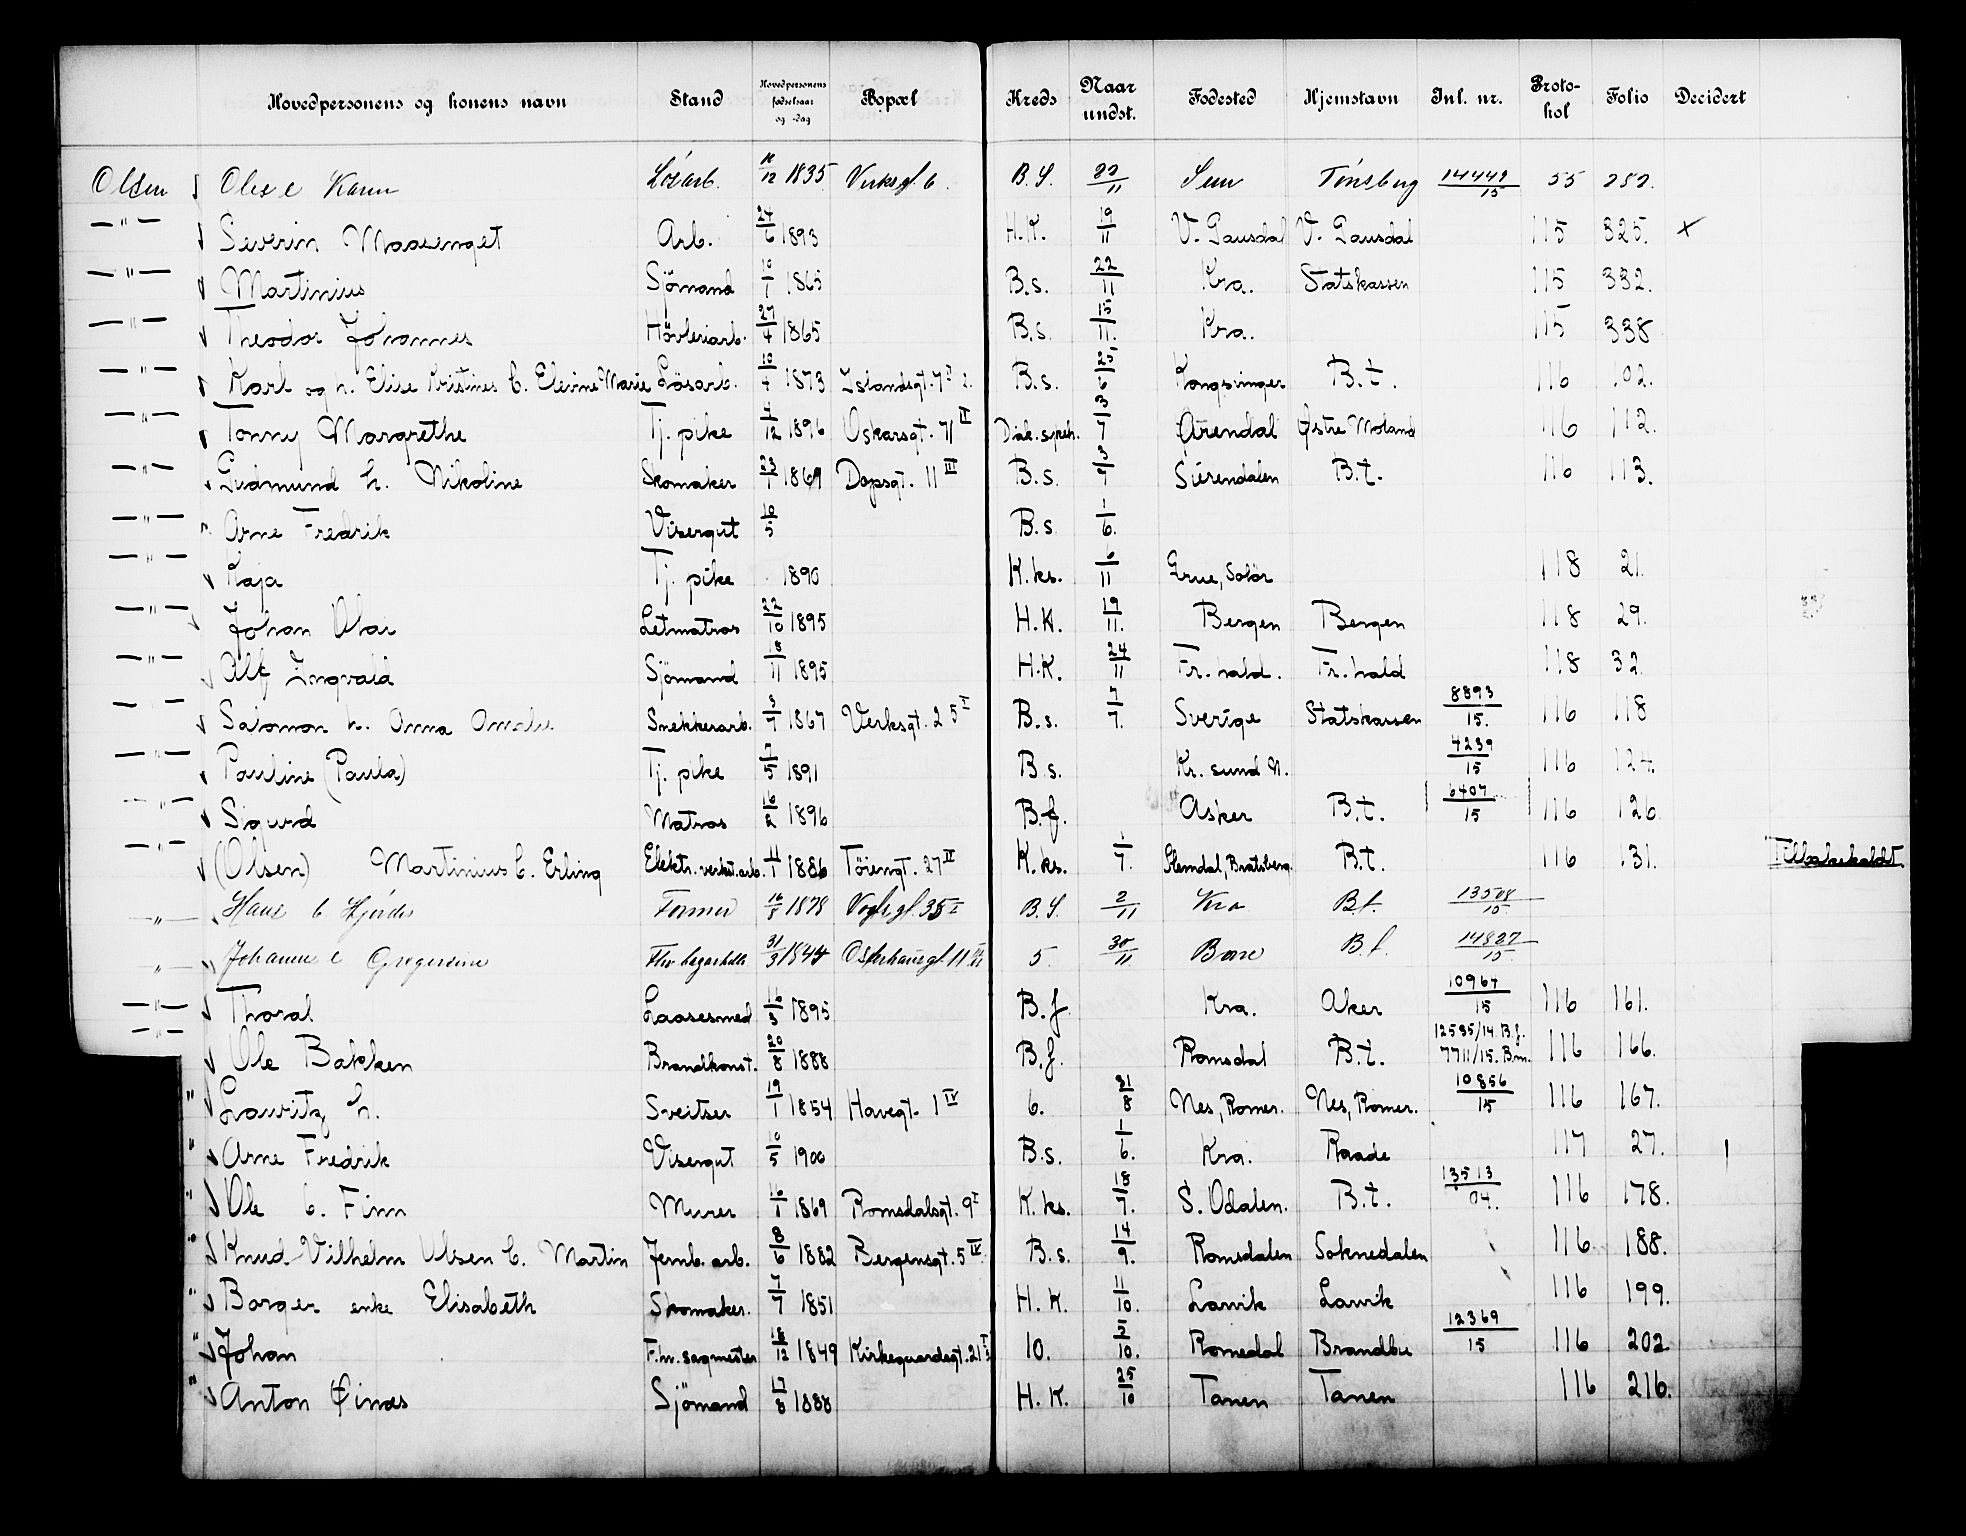 Hovedpersonens og konens navn Stand Hovedpersonens fødselsaar og -dag Bopæl Kreds Naar undst. Fødested Hjemstavn Inl. nr. Protokol Folio Decidert
Olsen Løsarb. 12 1835 Verksgt. 6. B. S. 22/11 Sem Tønsberg 14449/15 55 252.
—"— Severin Maasenget Arb. 24/6 1893 H.K. 19/11 V. Gausdal V. Gausdal 115 325. x
—"— Martinius Sjömand 10/7 1865 B.s. 22/11 Kra. Statskassen 115 332.
—"— Theodor Johannes Hövleriarb. 27/4 1865 B.s. 15/11. Kra. 115 338
—"— Karl og h. Elise Kristines b. Elevine Marie Lösarb. 10/4 1873 Islandsgt. 7 B.s. 25/6 Kongsvinger B.t. 116 102.
—"— Tonny Margrethe Tj. pike 4/12 1896 Oskarsgt. 71 II Diak. sykeh. 3/7 Arendal Østre Moland 116 112.
—"— Gudmund h. Nikoline Skomaker 23/1 1869 Dopsgt. 11 III B.s. Sürendalen B.t. 116 113.
—"— Arne Fredrik Visergut 10/5 B.s. 1/6.
—"— Kaja Tj. pike 1890 K.ks. 6/11 Grue, Solör 118 21.
—"— Johan Olav Letmatros 22/10 1895 H.K. 19/11. Bergen Bergen 118 29.
—"— Alf Ingvald Sjömand 18/11 1895 H.K. 24/11 Fr.hald. Fr.hald 118 32.
Salomon h. Anna Amalie Snekkerarb. 3/7 1867 Verksgt. 25 I B.s. 7/7. Sverige Statskassen 8893/15. 116 118
—"— Pauline (Paula) Tj. pike 7/5 1891 B.s. Kr. sund N. 4239/15 116 124.
—"— Sigurd Matros 16/2 1896 B.f. Asker B.t. 6407/15 116 126
—"— (Olsen) Martinius b. Erling Elektr. verkst.arb. 11/1 1886 Töiengt. 27 II K.ks. 1/7. Slemdal, Bratsberg. B.t. 116 131. Tilbakekaldt.
—"— Hans b Hjördis Former 16/8 1878 Vogtsgt. 35 I B.S. 2/11 Kra B.t. 13508/15
—"— Johannes e Gregersine 31/3 1844 Osterhausgt. 11 5. 30/11 B.t. 14827/15
—"— Thoral Laasesmed 16/3 1895 B.f Kra. Aker 10964/15 116 161.
—"— Ole Bakken Brandkonst. 20/8 1888 B.f. Romsdal B.t. 12585/14. B.f. 7711/15. B.m. 116 166.
" Lauritz h. Sveitser 19/1 1854 Havegt. 1 IV 6. 31/8 Nes, Romer. Nes, Romer. 10856/15 116 167.
" Arne Fredrik Visergut 10/5 1900 B.s. 1/6. Kra. Raade 117 27.
" Ole b. Finn Murer 16/1 1869 Romsdalsgt. 9 I K.ks. 18/7. S. Odalen. B.t. 13513/04. 116 178.
" Knud Vilhelm Olsen b. Martin Jernb. arb. 8/6 1882 Bergensgt. 5 IV. B.s. 14/9. Romsdalen Soknedalen 116 188.
" Borger enke Elisabeth Skomaker. 7/7 1851 H.K. 11/10. Larvik Larvik 116 199.
" Johan F.hv. sagmester 18/12 1849 Kirkegaardsgt. 21 10. 5/10. Romedal Brandbu 12369/15 116 202
" Anton Öines Sjömand 17/8 1888 H.K. 25/10 Tanen Tanen 116 216.